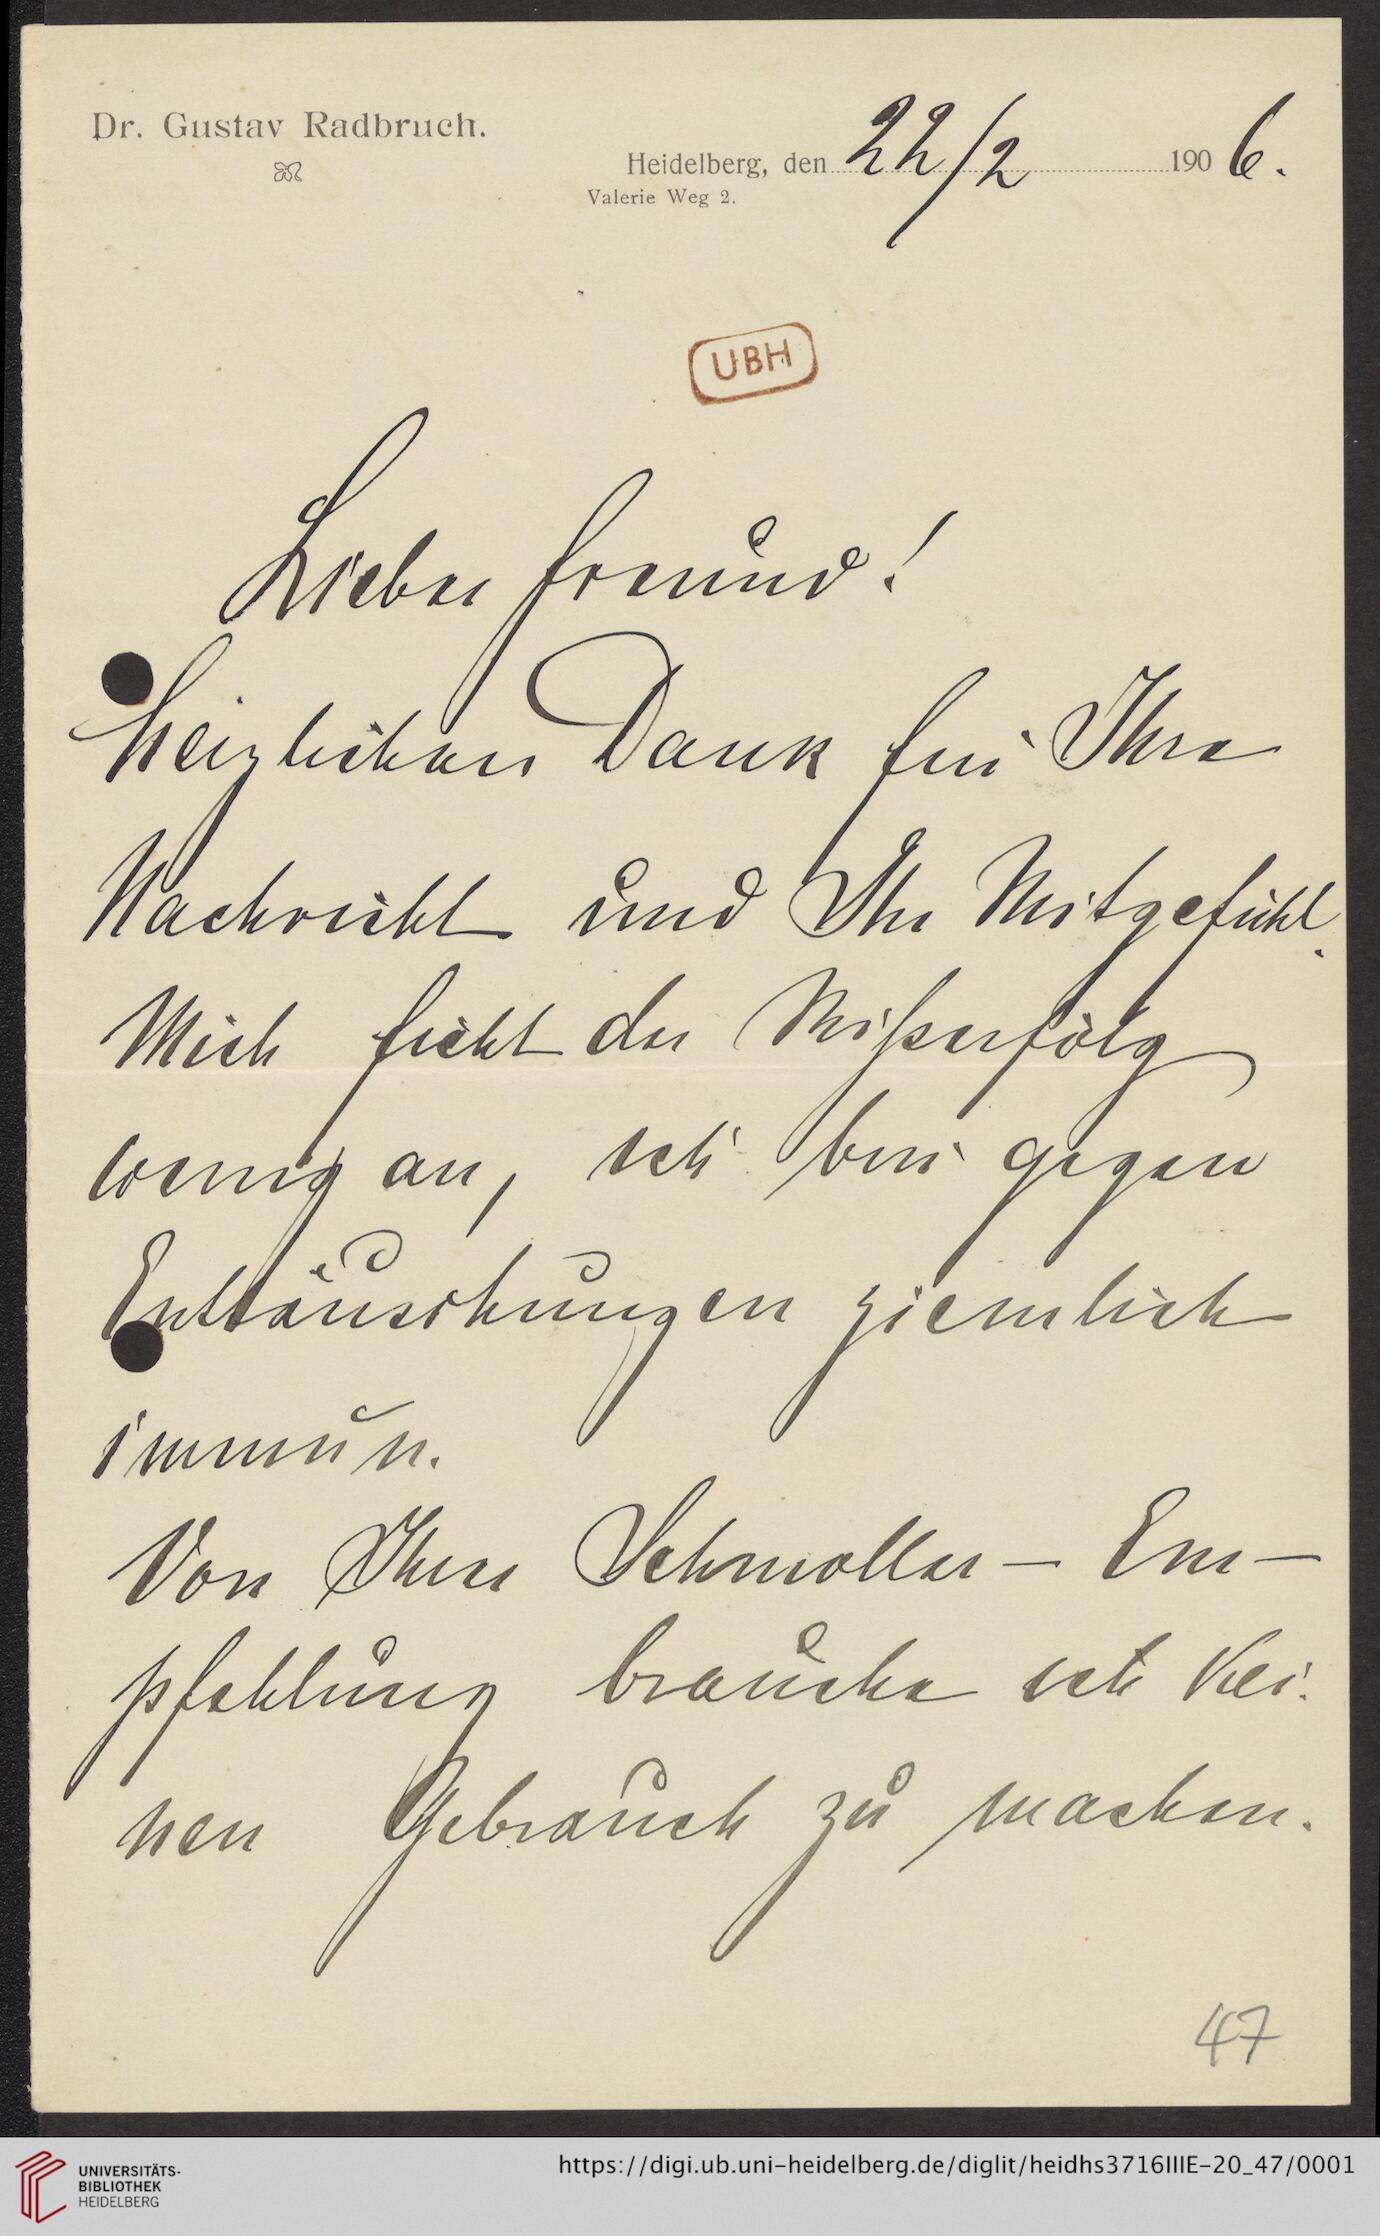 Dr. Gustav Radbruch.
Heidelberg, den 22/2 1906.
Valerie Weg 2.
UBH
Lieber Freund!
Herzlichen Dank für Ihre
Nachricht und Ihr Mitgefühl.
Mich ficht der Mißerfolg
wenig an, ich bin gegen
Enttäuschungen ziemlich
immun.
Von Ihrer Schmoller-Em-
pfehlung brauche ich kei-
nen Gebrauch zu machen.
47
UNIVERSITÄTS-
BIBLIOTHEK
HEIDELBERG
https://digi.ub.uni-heidelberg.de/diglit/heidhs3716IIIE-20_47/0001